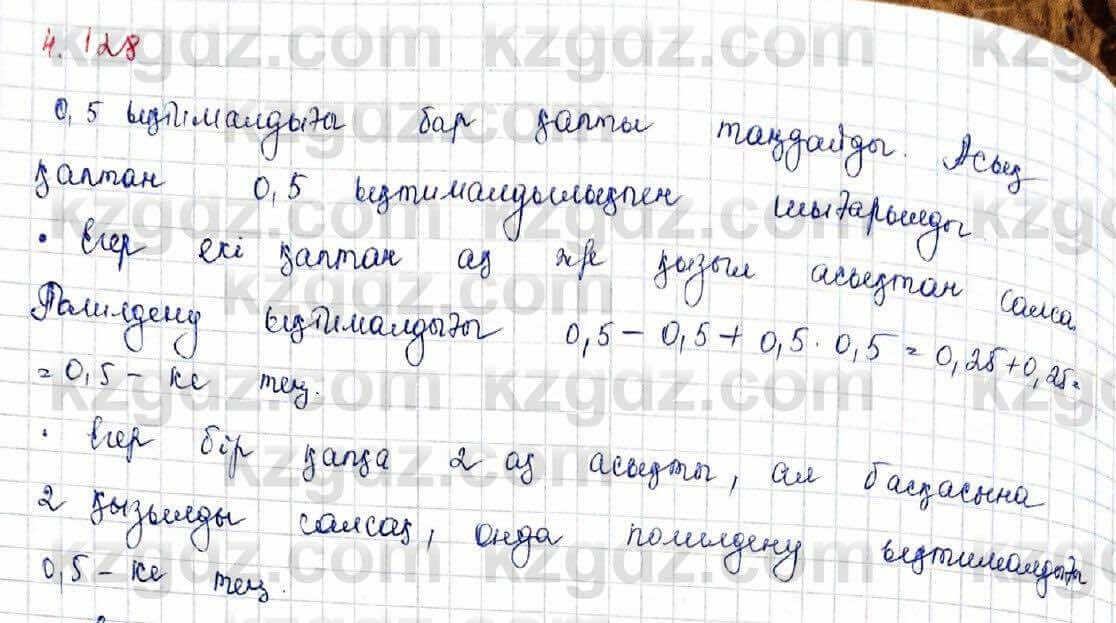 4.128
0,5 ықтималдығы бар қапты таңдайды. Асық
қаптан 0,5 ықтималдылықпен шығарылды.
• Егер екі қаптан ақ және қызыл асықтан салса.
Помилдену ықтималдығы 0,5 - 0,5 + 0,5 · 0,5 = 0,25 + 0,25 =
= 0,5 - ке тең.
• Егер бір қапқа 2 ақ асықты, ал басқасына
2 қызылды салсақ, онда помилдену ықтималдығы
0,5 - ке тең.
kzgdz.com